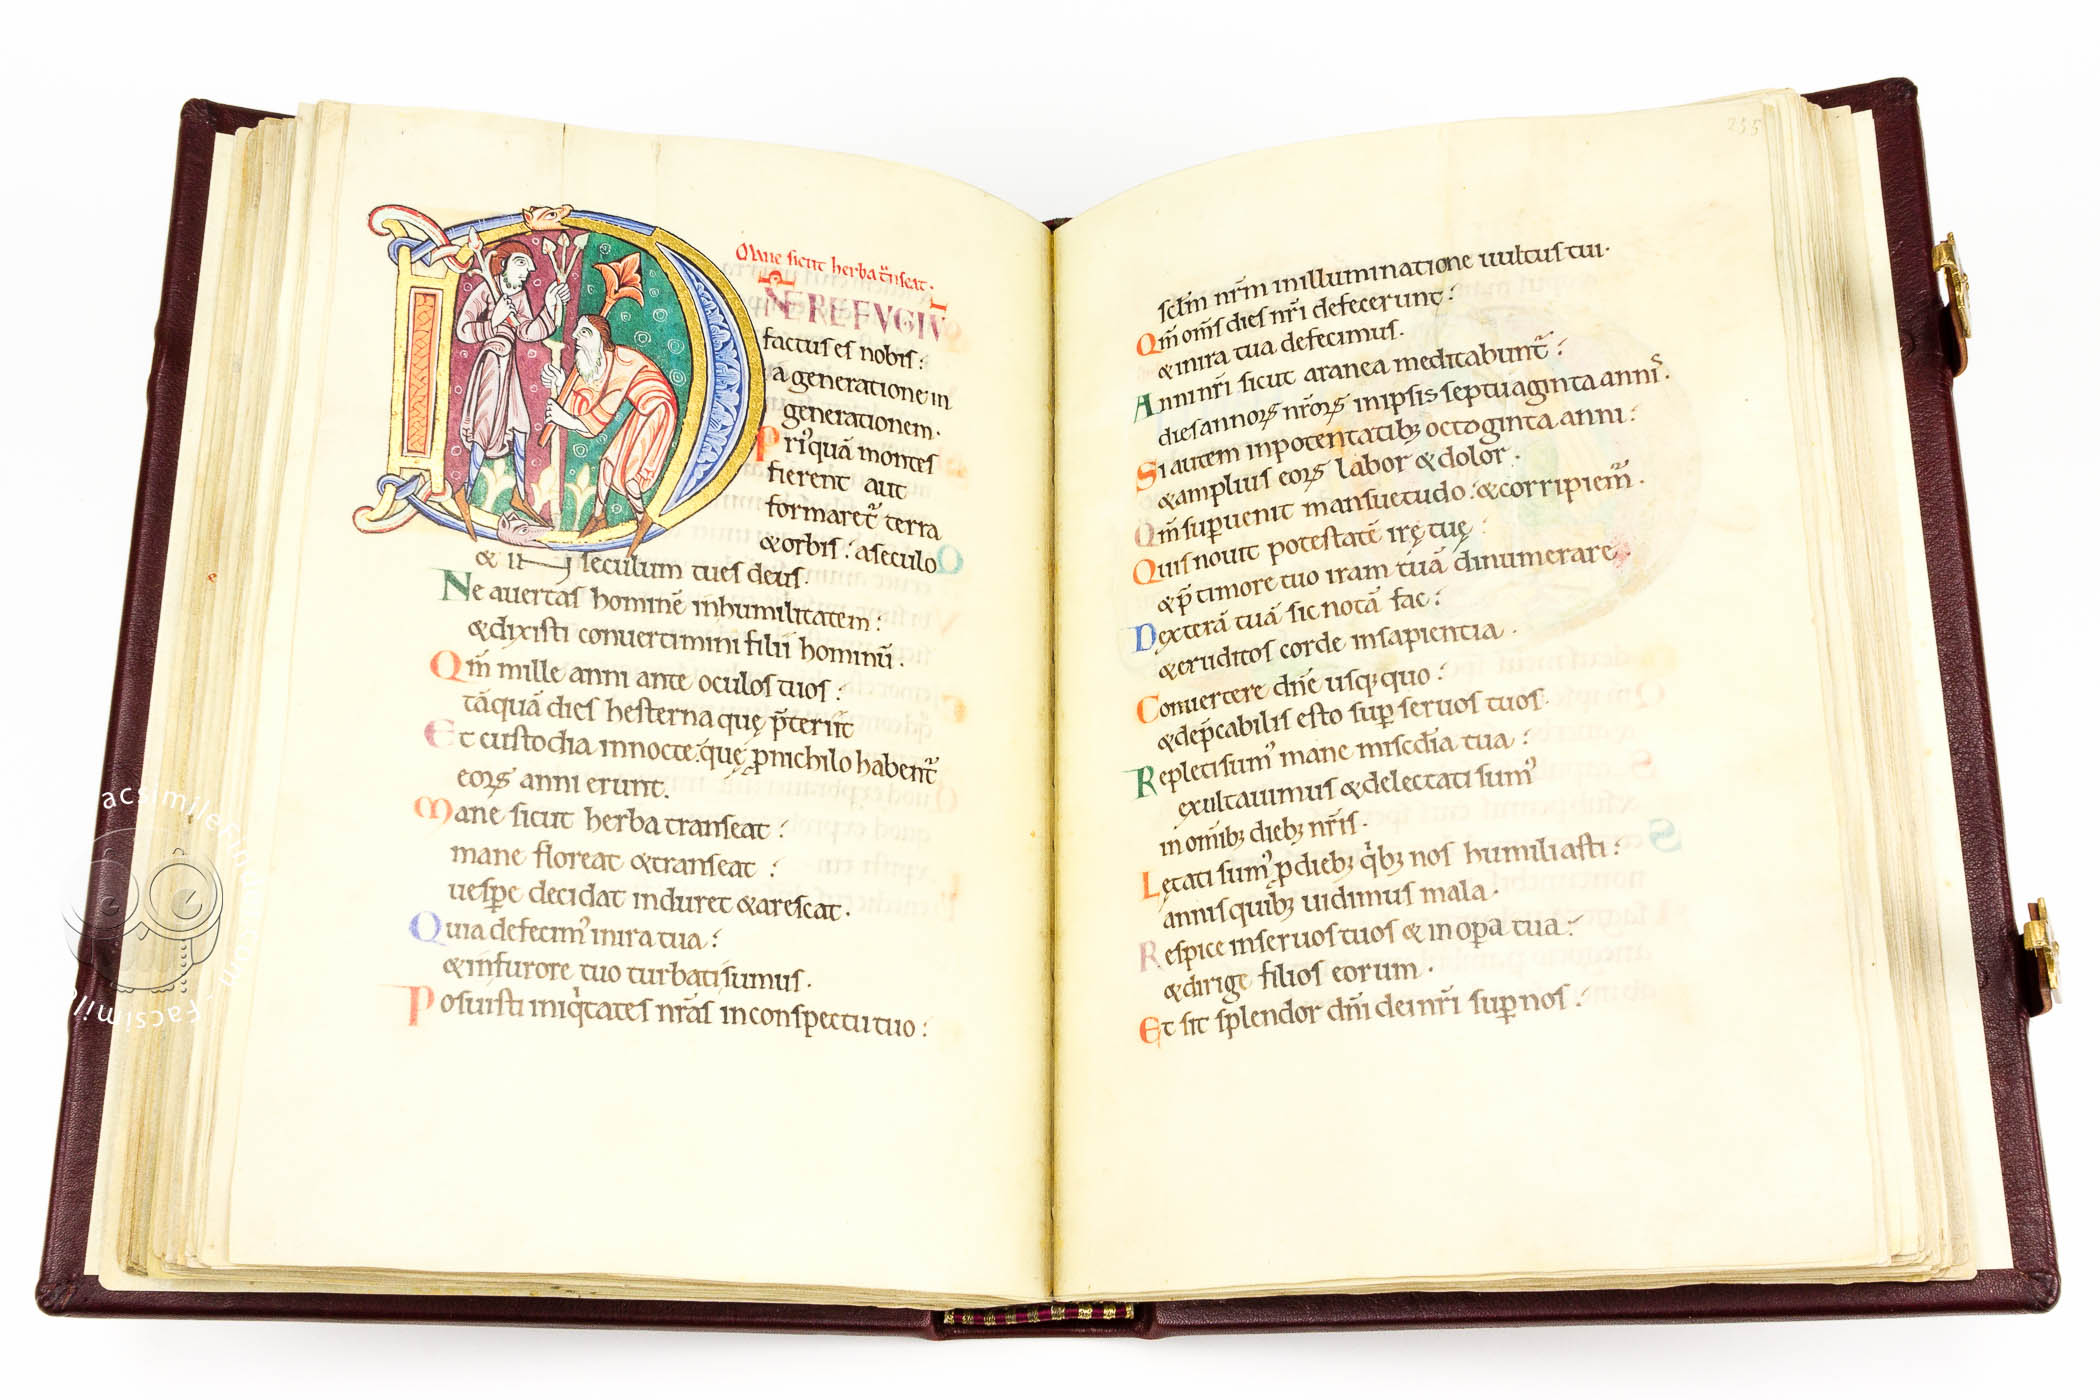 Mane sicut herba t̃nseat·
D̄NE REFUGIŪ
factus es nobis:
a generatione in
generationem·
Pri᷒quā montes
fierent aut
formaret᷑ terra
& orbis: aseculo
& in seculum tues deus·
Ne auertas hominē inhumilitatem:
& dixisti conuertimini filii hominū·
Qm̄ mille anni ante oculos tuos:
tāquā dies hesterna quę p̄teriit
Et custodia innocte· quę ꝓnichilo habent᷑
eoꝝ anni erunt.
Mane sicut herba transeat:
mane floreat & transeat:
uesꝑe decidat induret & arescat·
Quia defecim᷒ inira tua:
& infurore tuo turbati sumus·
Posuisti iniqͥtates nr̄as inconspectu tuo:
235
scl̄m nr̄m inilluminatione uultus tui·
Qm̄ om̄s dies nr̄i defecerunt:
& inira tua defecimus·
Anni nr̄i sicut aranea meditabunt᷑:
dies annoꝝ nr̄oꝝ inipsis septuaginta anni·
Si autem inpotentatibꝫ octoginta anni:
& amplius eoꝝ labor & dolor·
Qm̄ suꝑuenit mansuetudo: & corripiem᷑·
Quis nouit potestatē irę tuę:
& p̄ timore tuo iram tuā dinumerare
Dexterā tuā sic notā fac:
& eruditos corde insapientia·
Conuertere dn̄e usqꝫ quo:
& dep̄cabilis esto suꝑ seruos tuos·
Repleti sum᷒ mane mise̅dia tua:
exultauimus & delectati sum᷒
in om̄ibꝫ diebꝫ nr̄is·
Lętati sum᷒ ꝓ diebꝫ qͥbꝫ nos humiliasti:
annis quibꝫ uidimus mala·
Respice inseruos tuos & in oꝑa tua:
& dirige filios eorum·
Et sit splendor dn̄i dei nr̄i suꝑ nos: